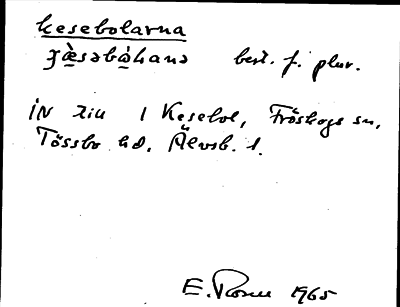 kesebolarna
best. f. plur.
IN till 1 Kesebol, Fröskogs sn,
Tössbo hd. Älvsb. l.
E. 1965